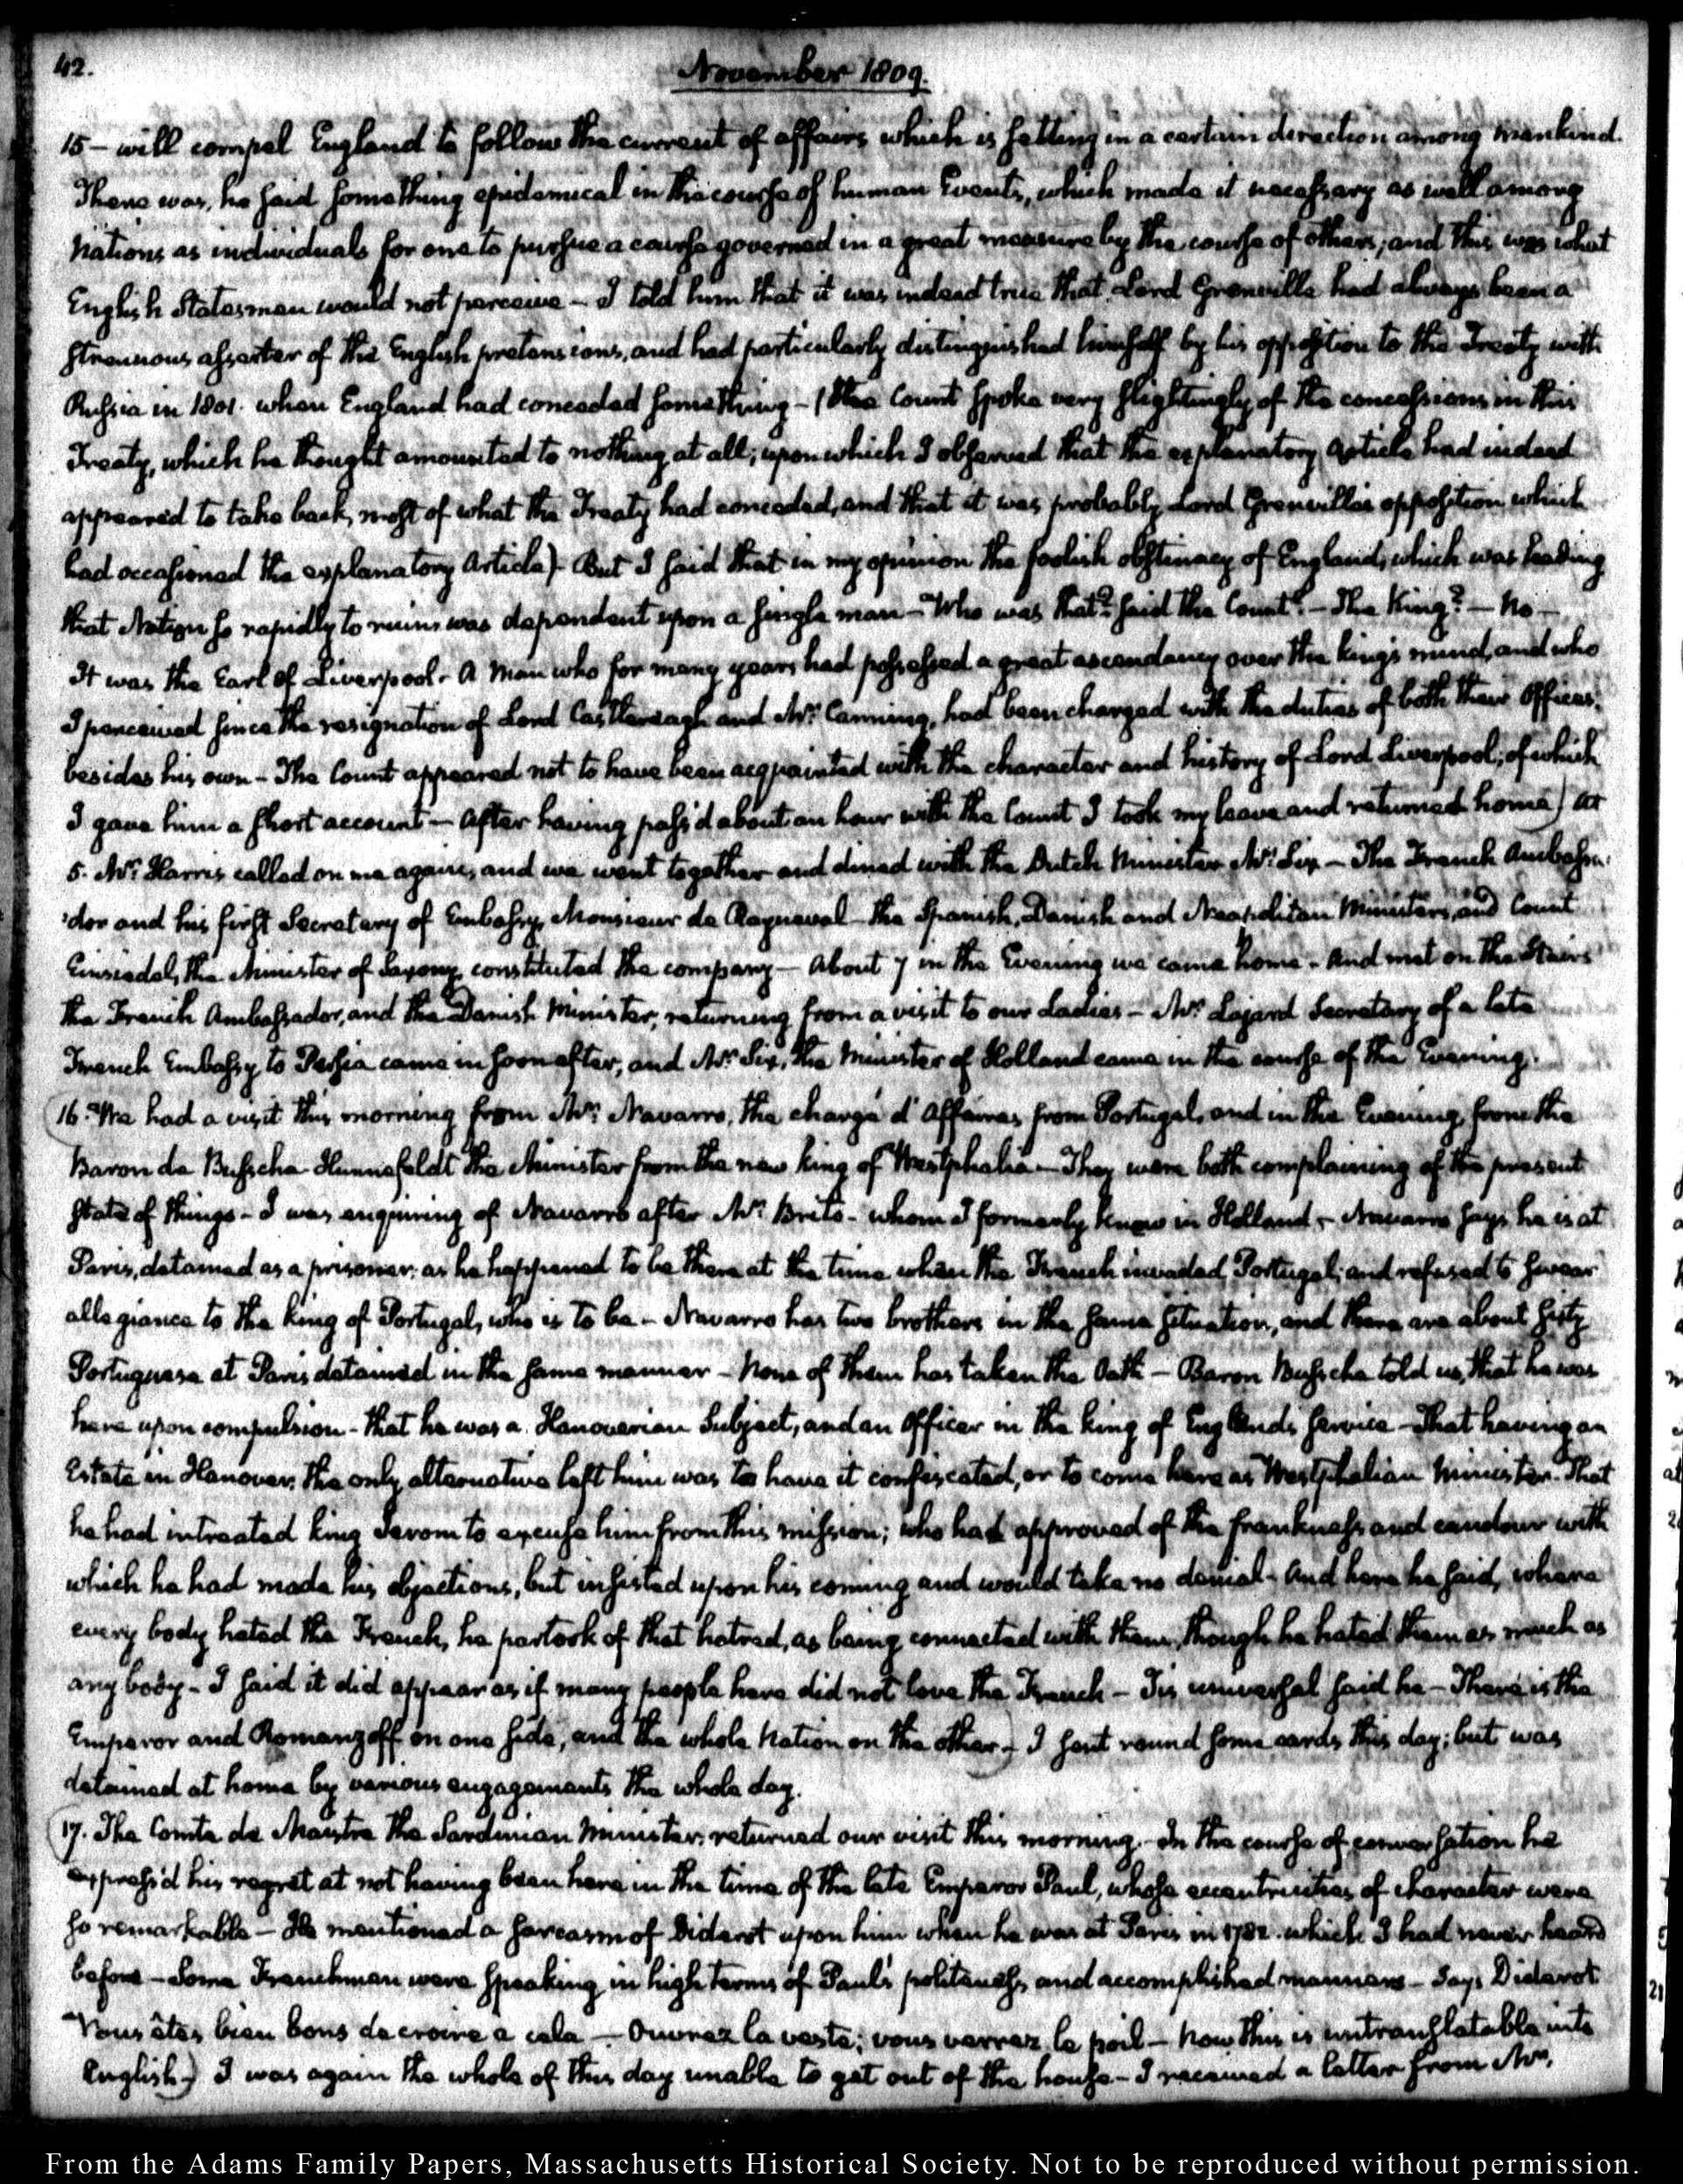 42.
November 1809.
15 – will compel England to follow the current of affairs which is setting in a certain direction among mankind.
There was, he said something epidemical in the course of human Events, which made it necessary as well among
Nations as individuals for one to pursue a course governed in a great measure by the course of others; and this was what
English Statesmen would not perceive – I told him that it was indeed true that Lord Grenville had always been a
strenuous assertor of the English pretensions, and had particularly distinguished himself by his opposition to the Treaty with
Russia in 1801. when England had conceded something – (The Count spoke very slightingly of the concessions in this
Treaty, which he thought amounted to nothing at all; upon which I observed that the explanatory article had indeed
appeared to take back, most of what the Treaty had conceded, and that it was probably Lord Grenville's opposition which
had occasioned the explanatory Article) – But I said that in my opinion the foolish obstinacy of England, which was leading
that Nation so rapidly to ruin, was dependent upon a single man – "Who was that? said the Count? – The King? – No –
It was the Earl of Liverpool – A man who for many years had possessed a great ascendancy over the king's mind, and who
I perceived since the resignation of Lord Castlereagh and Mr: Canning, had been charged with the duties of both their Offices;
besides his own – The Count appeared not to have been acquainted with the character and history of Lord Liverpool; of which
I gave him a short account – After having pass'd about an hour with the Count I took my leave and returned home) At
5. Mr: Harris called on me again, and we went together and dined with the Dutch Minister Mr: Six – The French Ambassa-
dor and his first Secretary of Embassy, Monsieur de Rayneval – the Spanish, Danish and Neapolitan Ministers, and Count
Einsiedel, the Minister of Saxony, constituted the company – About 7 in the Evening we came home – And met on the Stairs
the French Ambassador, and the Danish Minister, returning from a visit to our Ladies – Mr: Lajard Secretary of a late
French Embassy to Persia came in soon after, and Mr: Six, the Minister of Holland came in the course of the Evening.
16. We had a visit this morning from Mr: Navarro, the chargé d'Affaires from Portugal, and in the Evening, from the
Baron de Bussche Hunnefeldt the Minister from the new king of Westphalia – They were both complaining of the present
state of things – I was enquiring of Navarro after Mr: Brito – whom I formerly knew in Holland – Navarro says he is at
Paris, detained as a prisoner; as he happened to be there at the time when the French invaded Portugal; and refused to swear
allegiance to the king of Portugal, who is to be – Navarro has two brothers in the same situation, and there are about sixty
Portuguese at Paris detained in the same manner – None of them has taken the Oath – Baron Bussche told us, that he was
here upon compulsion – that he was a Hanoverian Subject, and an Officer in the king of England's service – That having an
Estate in Hanover, the only alternative left him was to have it confiscated, or to come here as Westphalian Minister. That
he had intreated king Jerom to excuse him from this mission; who had approved of the frankness and candour with
which he had made his objections, but insisted upon his coming and would take no denial – And here he said, where
every body hated the French, he partook of that hatred, as being connected with them, though he hated them as much as
any body – I said it did appear as if many people here did not love the French – Tis universal said he – There is the
Emperor and Romanzoff on one side, and the whole Nation on the other –) I sent round some cards this day; but was
detained at home by various engagements the whole day.
17. The Comte de Maistre the Sardinian Minister, returned our visit this morning. In the course of conversation he
express'd his regret at not having been here in the time of the late Emperor Paul, whose eccentricities of character were
so remarkable – He mentioned a sarcasm of Diderot upon him when he was at Paris in 1782. which I had never heard
before – Some Frenchmen were speaking in high terms of Paul's politeness, and accomplished manners – Says Diderot
"Vous êtes bien bons de croire a cela – Ouvrez la veste; vous verrez le poil – Now this is untranslatable into
English –) I was again the whole of this day unable to get out of the house – I received a letter from Mr:
From the Adams Family Papers, Massachusetts Historical Society. Not to be reproduced without permission.